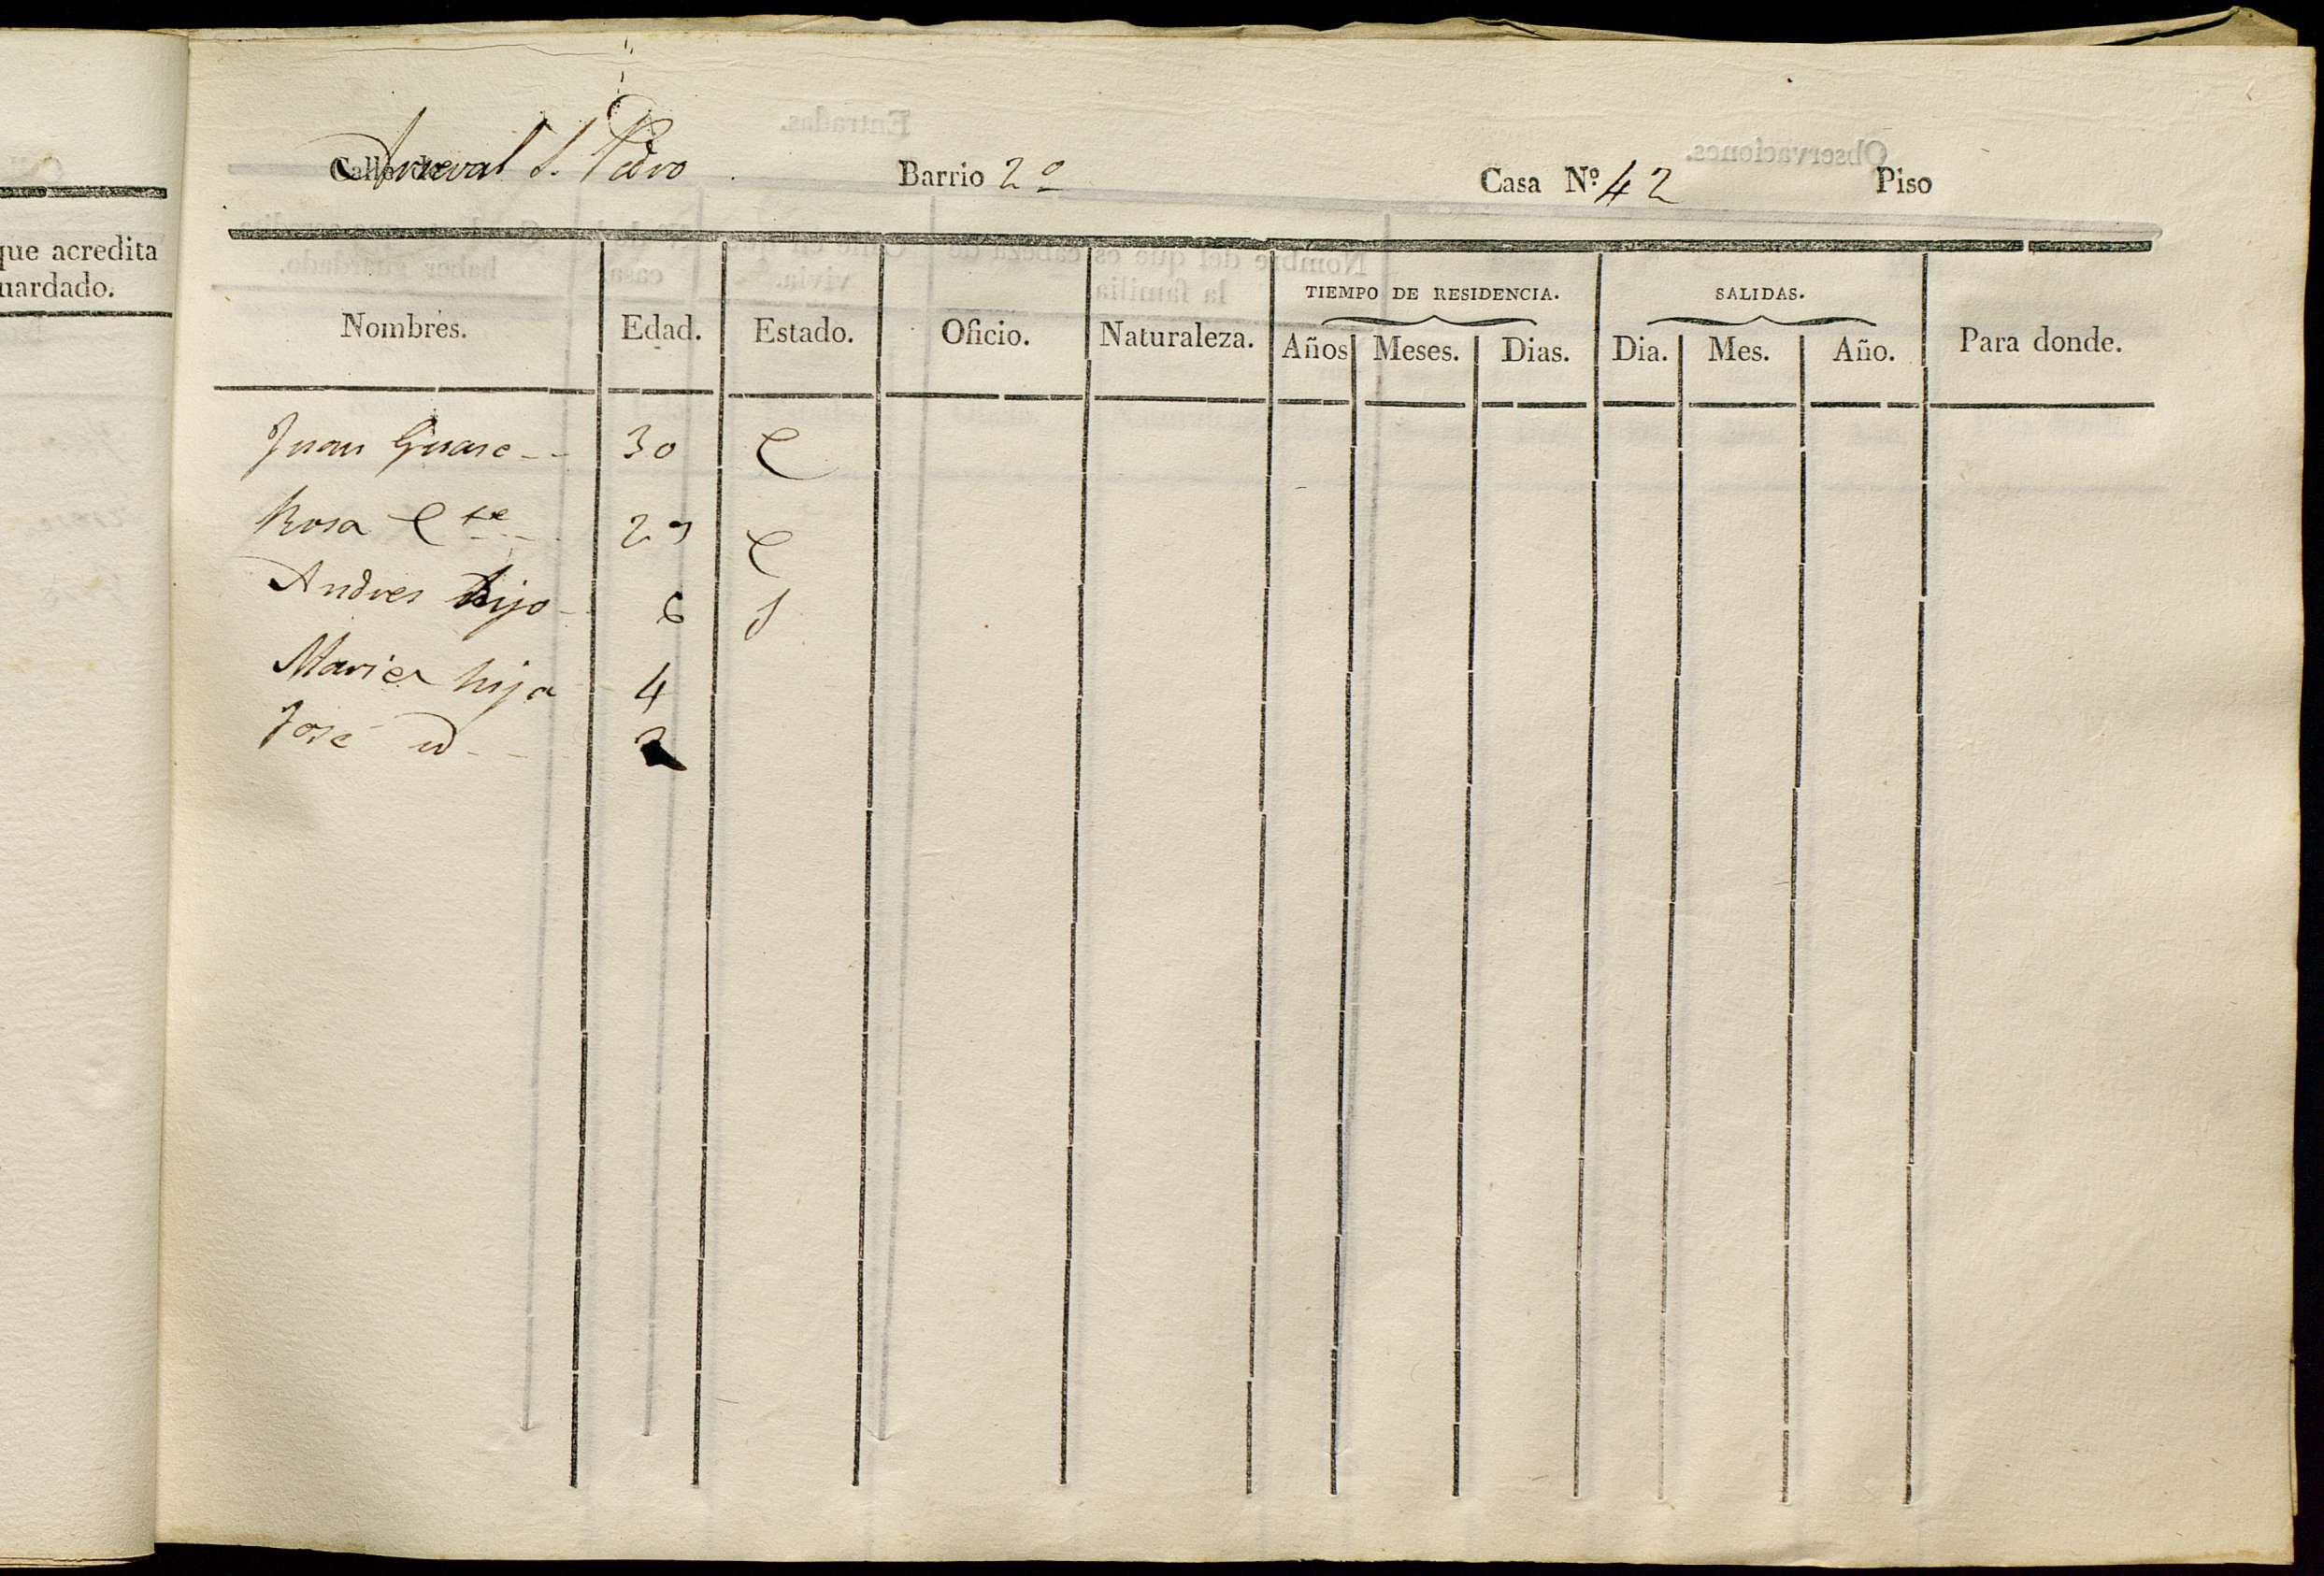 que acredita
uardado.
Calle de Arreval S. Pedro Barrio 2º Casa Nº 42 Piso
Nombres. Edad. Estado. Oficio. Naturaleza. TIEMPO DE RESIDENCIA. Años Meses. Dias. SALIDAS. Dia. Mes. Año. Para donde.
Juan Guasc 30 C
Rosa C te 29 C
Andres hijo 6 S
Maria hija 4
José id